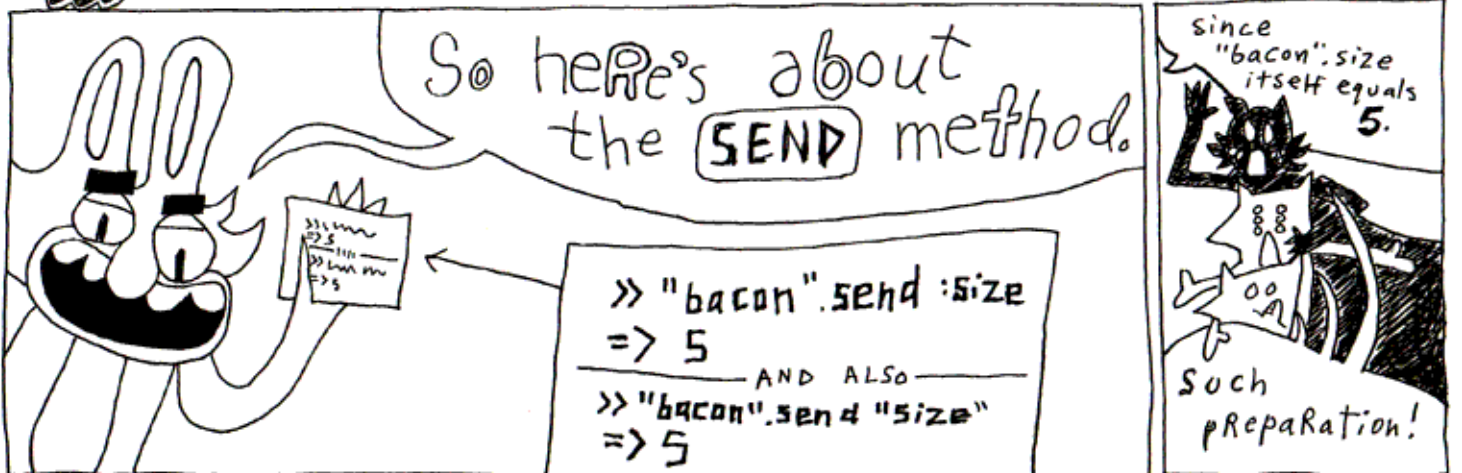 So heRe's about
the SEND method.
>> "bacon".send :size
=> 5
AND ALSO
>> "bacon".send "size"
=> 5
=> 5
=> 5
since
"bacon".size
itself equals
5.
Such
pRepaRation!